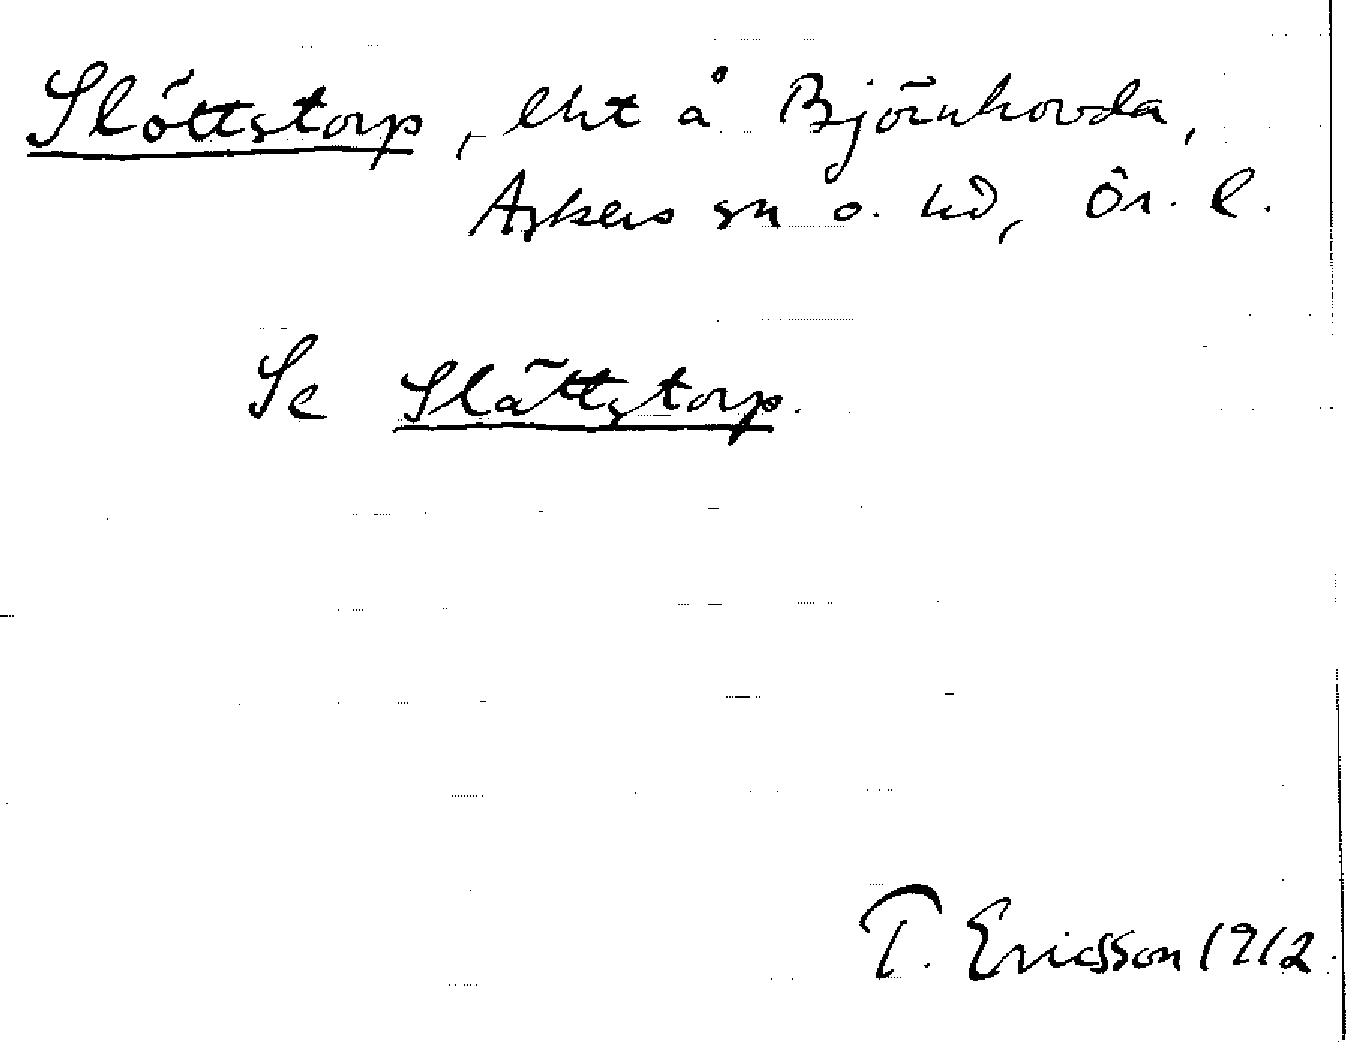 Slöttstorp, lht å Björnhovda,
Askers sn o. hd, Ör. l.
Se Slättstorp.
T. Ericsson 1912